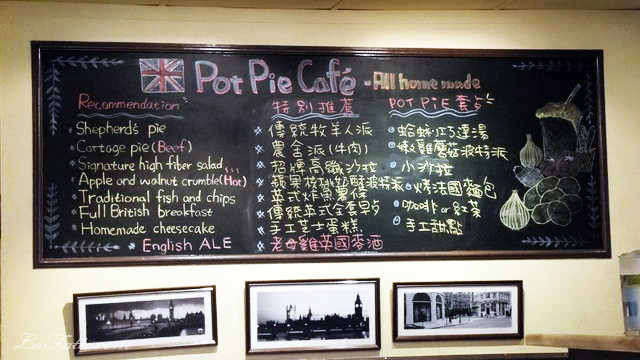 Pot Pie Café - All home made
Recommendation
Shepherd's pie
Cottage pie (Beef)
Signature high fiber salad
Apple and walnut crumble (Hot)
Traditional fish and chips
Full British breakfast
Homemade cheesecake
English ALE
特別推薦
傳統牧羊人派
農舍派(牛肉)
招牌高纖沙拉
蘋果核桃奶酥波特派
英式炸魚薯條
傳統英式全套早夕
手工芝士蛋糕
老母雞英國麥酒
POT PIE 套夕
蛤蜊巧達湯
雞蘑菇波特派
小沙拉
烤法國麵包
咖啡 or 紅茶
手工甜點